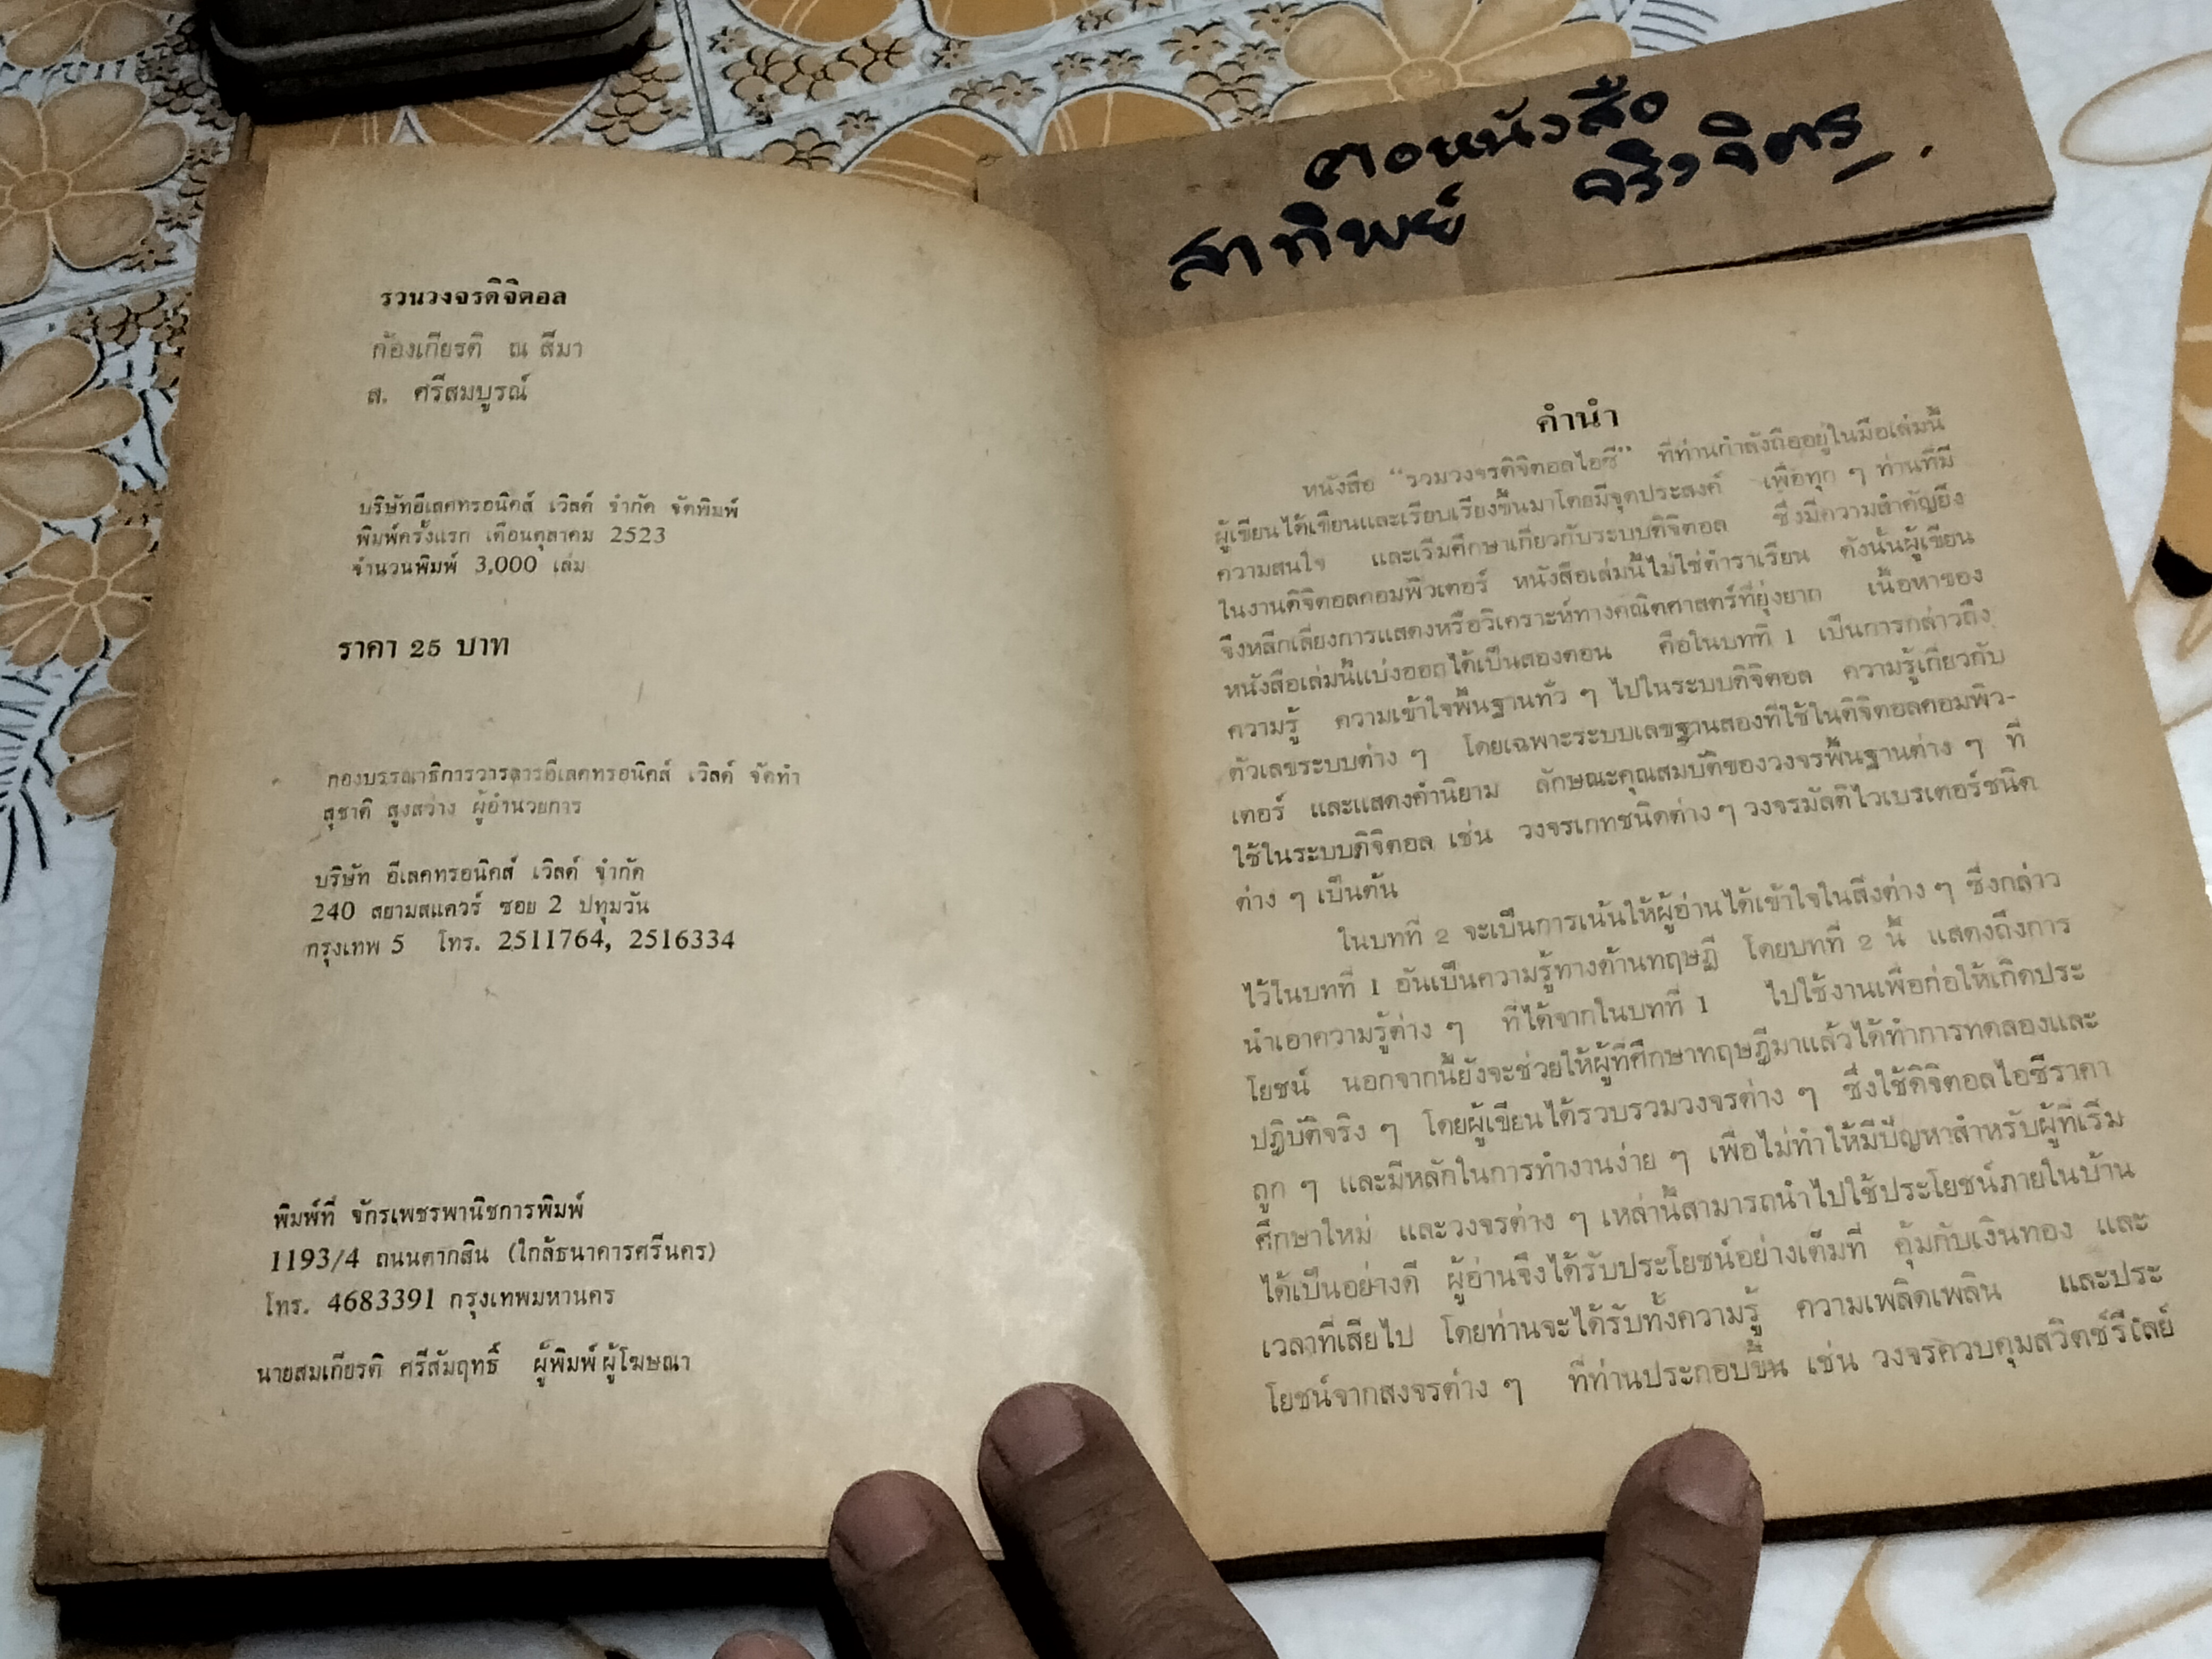 คอหนังสือ
สาทิพย์ จริงจิตร
รวนวงจรดิจิตอล
ก้องเกียรติ ณ สีมา
ส. ศรีสมบูรณ์
บริษัทอีเลคทรอนิคส์ เวิลด์ จำกัด จัดพิมพ์
พิมพ์ครั้งแรก เดือนตุลาคม 2523
จำนวนพิมพ์ 3,000 เล่ม
ราคา 25 บาท
กองบรรณาธิการวารสารอีเลคทรอนิคส์ เวิลด์ จัดทำ
สุชาติ สูงสว่าง ผู้อำนวยการ
บริษัท อีเลคทรอนิคส์ เวิลด์ จำกัด
240 สยามสแควร์ ซอย 2 ปทุมวัน
กรุงเทพ 5 โทร. 2511764, 2516334
พิมพ์ที่ จักรเพชรพานิชการพิมพ์
1193/4 ถนนตากสิน (ใกล้ธนาคารศรีนคร)
โทร. 4683391 กรุงเทพมหานคร
นายสมเกียรติ ศรีสัมฤทธิ์ ผู้พิมพ์ผู้โฆษณา
คำนำ
หนังสือ “รวมวงจรดิจิตอลไอซี” ที่ท่านกำลังถืออยู่ในมือเล่มนี้
ผู้เขียนได้เขียนและเรียบเรียงขึ้นมาโดยมีจุดประสงค์ เพื่อทุก ๆ ท่านที่มี
ความสนใจ และเริ่มศึกษาเกี่ยวกับระบบดิจิตอล ซึ่งมีความสำคัญยิ่ง
ในงานดิจิตอลคอมพิวเตอร์ หนังสือเล่มนี้ไม่ใช่ตำราเรียน ดังนั้นผู้เขียน
จึงหลีกเลี่ยงการแสดงหรือวิเคราะห์ทางคณิตศาสตร์ที่ยุ่งยาก เนื้อหาของ
หนังสือเล่มนี้แบ่งออกได้เป็นสองตอน คือในบทที่ 1 เป็นการกล่าวถึง
ความรู้ ความเข้าใจพื้นฐานทั่ว ๆ ไปในระบบดิจิตอล ความรู้เกี่ยวกับ
ตัวเลขระบบต่าง ๆ โดยเฉพาะระบบเลขฐานสองที่ใช้ในดิจิตอลคอมพิว-
เตอร์ และแสดงคำนิยาม ลักษณะคุณสมบัติของวงจรพื้นฐานต่าง ๆ ที่
ใช้ในระบบดิจิตอล เช่น วงจรเกทชนิดต่าง ๆ วงจรมัลติไวเบรเตอร์ชนิด
ต่าง ๆ เป็นต้น
ในบทที่ 2 จะเป็นการเน้นให้ผู้อ่านได้เข้าใจในสิ่งต่าง ๆ ซึ่งกล่าว
ไว้ในบทที่ 1 อันเป็นความรู้ทางด้านทฤษฎี โดยบทที่ 2 นี้ แสดงถึงการ
นำเอาความรู้ต่าง ๆ ที่ได้จากในบทที่ 1 ไปใช้งานเพื่อก่อให้เกิดประ
โยชน์ นอกจากนี้ยังจะช่วยให้ผู้ที่ศึกษาทฤษฎีมาแล้วได้ทำการทดลองและ
ปฏิบัติจริง ๆ โดยผู้เขียนได้รวบรวมวงจรต่าง ๆ ซึ่งใช้ดิจิตอลไอซีราคา
ถูก ๆ และมีหลักในการทำงานง่าย ๆ เพื่อไม่ทำให้มีปัญหาสำหรับผู้ที่เริ่ม
ศึกษาใหม่ และวงจรต่าง ๆ เหล่านี้สามารถนำไปใช้ประโยชน์ภายในบ้าน
ได้เป็นอย่างดี ผู้อ่านจึงได้รับประโยชน์อย่างเต็มที่ คุ้มกับเงินทอง และ
เวลาที่เสียไป โดยท่านจะได้รับทั้งความรู้ ความเพลิดเพลิน และประ
โยชน์จากสงจรต่าง ๆ ที่ท่านประกอบขึ้น เช่น วงจรควบคุมสวิตช์รีเลย์